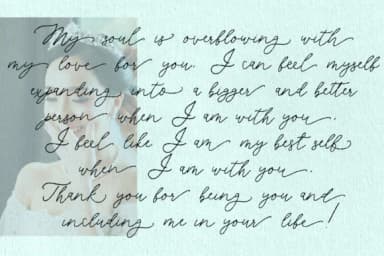 My soul is overflowing with
my love for you. I can feel myself
expanding into a bigger and better
person when I am with you.
I feel like I am my best self
when I am with you.
Thank you for being you and
including me in your life!